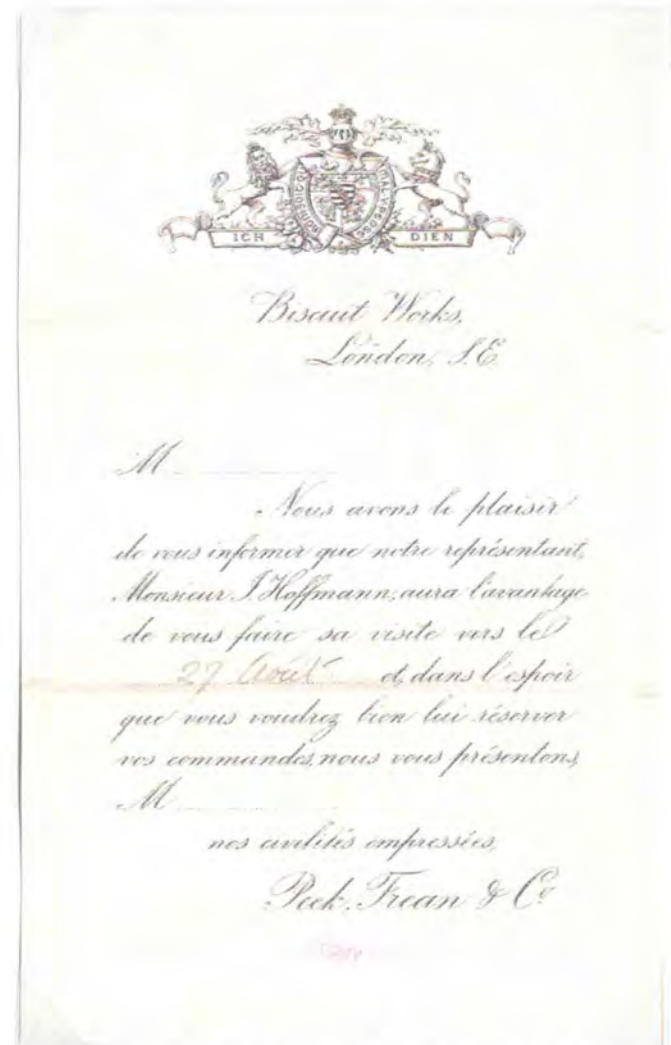 ICH DIEN
Biscuit Works,
London, S.E.
M
Nous avons le plaisir
de vous informer que notre représentant,
Monsieur J. Hoffmann, aura l'avantage
de vous faire sa visite vers le
27 Août et, dans l'espoir
que vous voudrez bien lui réserver
vos commandes, nous vous présentons,
M
nos civilités empressées,
Peek, Frean & Co.